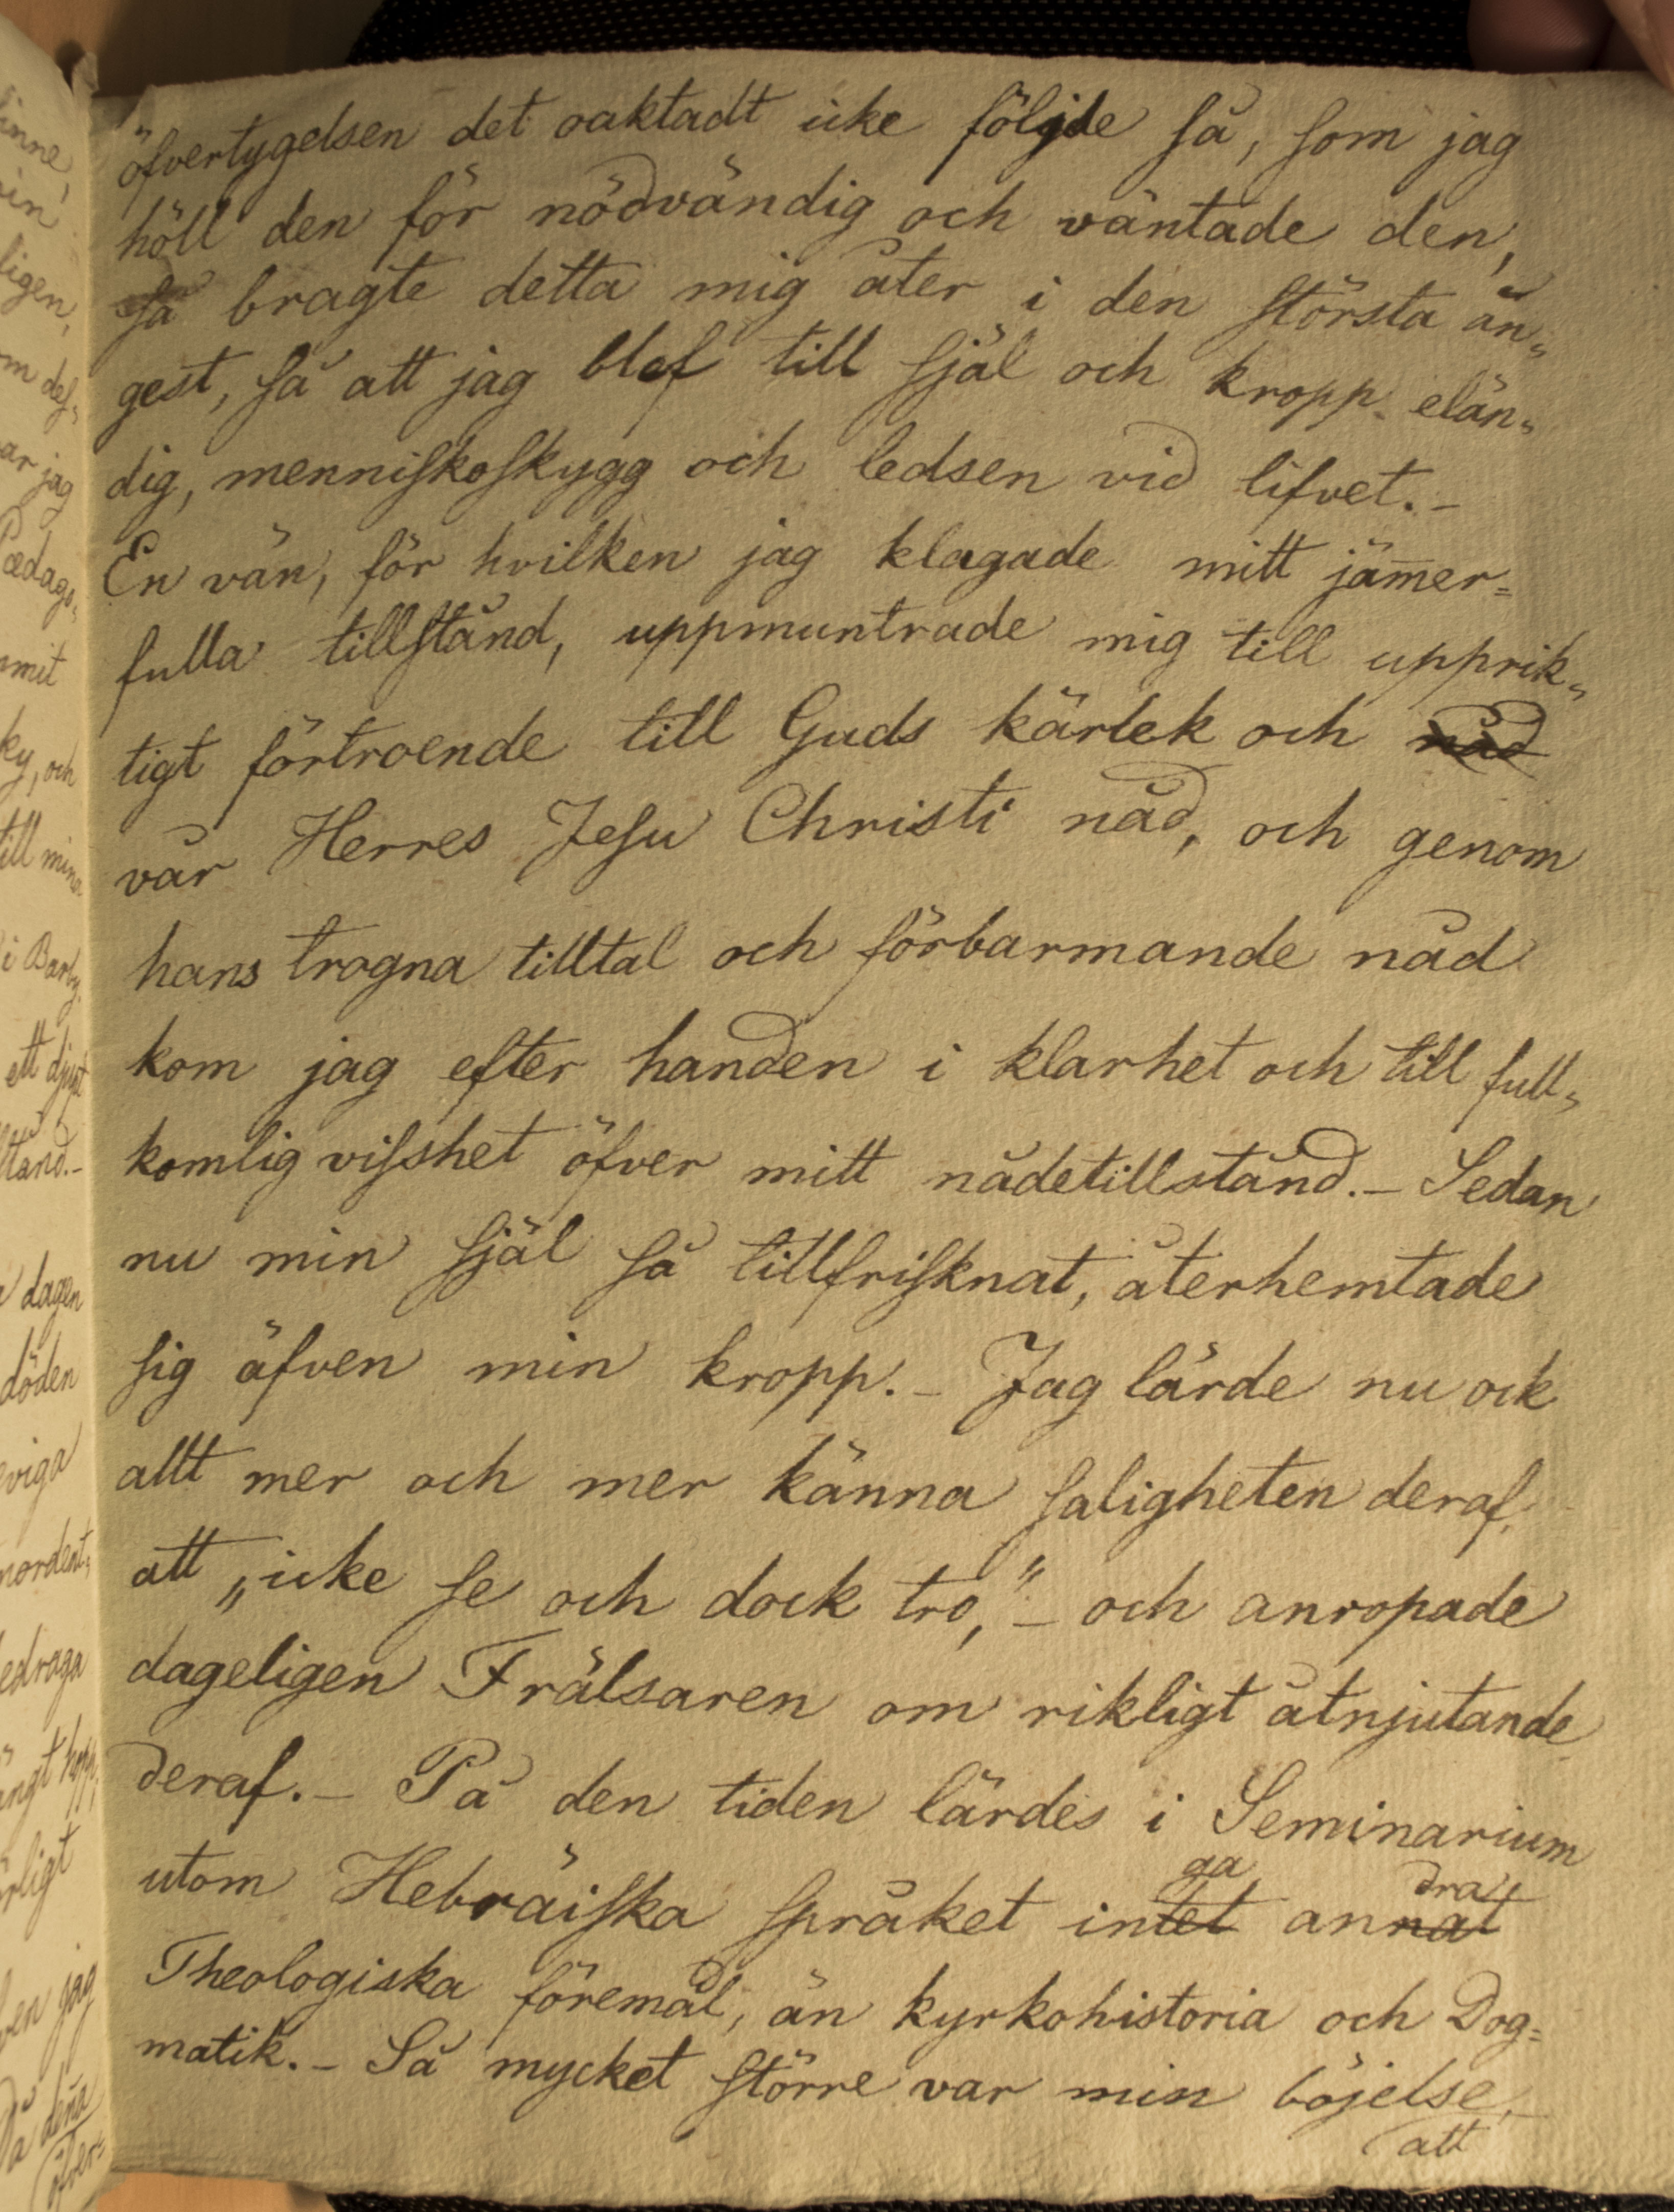 öfvertygelsen det oaktadt icke följde så, som jag
höll den för nödvändig och väntade den,
så bragte detta mig åter i den största ån„
gest, så att jag blef till själ och kropp elän„
dig, menniskoskygg och ledsen vid lifvet.–
En vän, för hvilken jag klagade mitt jam̄er=
fulla tillstånd, uppmuntrade mig till upprik„
tigt förtroende till Guds kärlek och nåd
vår Herres Jesu Christi nåd, och genom
hans trogna tilltal och förbarmande nåd
kom jag efter handen i klarhet och till full„
komlig visshet öfver mitt nådetillstånd.– Sedan
nu min själ så tillfrisknat, återhemtade
sig äfven min kropp.– Jag lärde nu ock
allt mer och mer känna saligheten deraf,
att „icke se och dock tro,"– och anropade
dageligen Frälsaren om rikligt åtnjutande
deraf.– På den tiden lärdes i Seminarium
ga dra
utom Hebräiska språket intet annat
Theologiska föremål, än kyrkohistoria och Dog=
matik.– Så mycket större var min böjelse,–
att
inne,
ligen,
m des„
ar jag
Pædago„
mit
ky, och
till mina
i Barby
ett djupt
stånd.–
dagen
döden
eviga
edraga
jag
På den̄a
öfver=